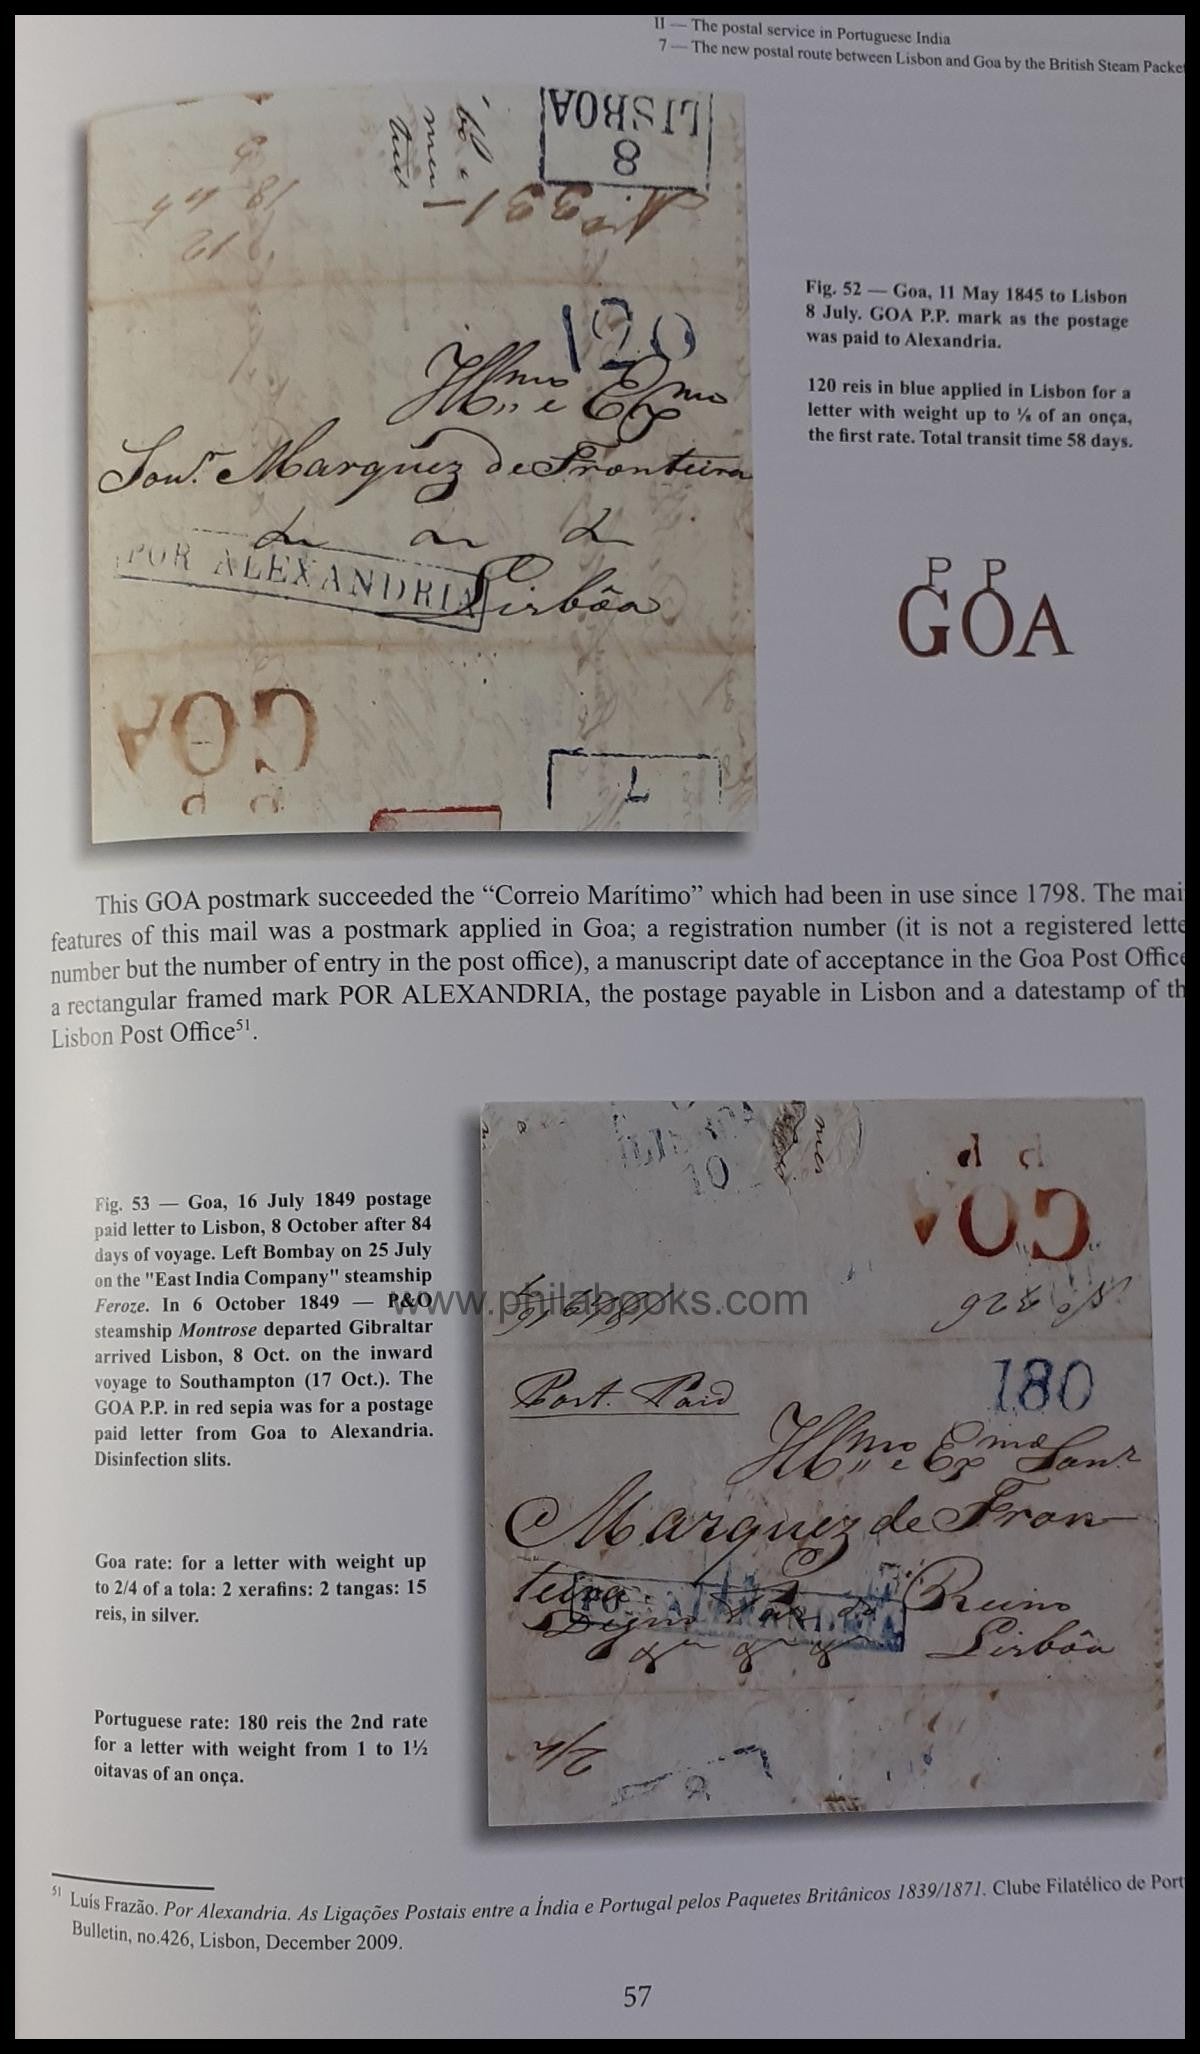 II — The postal service in Portuguese India
7 — The new postal route between Lisbon and Goa by the British Steam Packet
LISBOA
8
Nº 331
120
Illmo e Exmo
Senr. Marquez de Fronteira
POR ALEXANDRIA
Lisbôa
GOA
P P
Fig. 52 — Goa, 11 May 1845 to Lisbon
8 July. GOA P.P. mark as the postage
was paid to Alexandria.
120 reis in blue applied in Lisbon for a
letter with weight up to ⅛ of an onça,
the first rate. Total transit time 58 days.
P P
GOA
This GOA postmark succeeded the “Correio Marítimo” which had been in use since 1798. The mai
features of this mail was a postmark applied in Goa; a registration number (it is not a registered lette
number but the number of entry in the post office), a manuscript date of acceptance in the Goa Post Office
a rectangular framed mark POR ALEXANDRIA, the postage payable in Lisbon and a datestamp of th
Lisbon Post Office51.
Fig. 53 — Goa, 16 July 1849 postage
paid letter to Lisbon, 8 October after 84
days of voyage. Left Bombay on 25 July
on the "East India Company" steamship
Feroze. In 6 October 1849 — P&O
steamship Montrose departed Gibraltar
arrived Lisbon, 8 Oct. on the inward
voyage to Southampton (17 Oct.). The
GOA P.P. in red sepia was for a postage
paid letter from Goa to Alexandria.
Disinfection slits.
Goa rate: for a letter with weight up
to 2/4 of a tola: 2 xerafins: 2 tangas: 15
reis, in silver.
Portuguese rate: 180 reis the 2nd rate
for a letter with weight from 1 to 1½
oitavas of an onça.
10
P P
GOA
www.philabooks.com
Nº 326
Post. Paid
180
Illmo e Exmo Senr
Marquez de Fron
teira
Digno Par do Reino
Lisbôa
2/4
51 Luís Frazão. Por Alexandria. As Ligações Postais entre a Índia e Portugal pelos Paquetes Britânicos 1839/1871. Clube Filatélico de Port
Bulletin, no.426, Lisbon, December 2009.
57